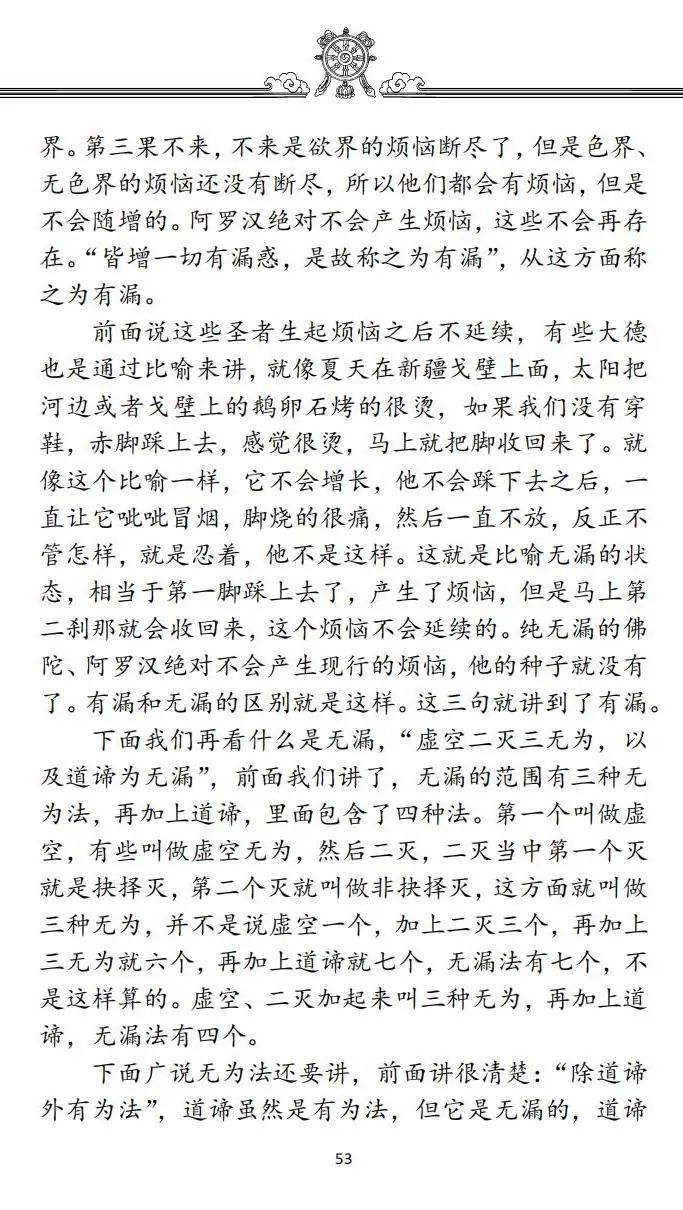 界。第三果不来，不来是欲界的烦恼断尽了，但是色界、
无色界的烦恼还没有断尽，所以他们都会有烦恼，但是
不会随增的。阿罗汉绝对不会产生烦恼，这些不会再存
在。“皆增一切有漏惑，是故称之为有漏”，从这方面称
之为有漏。
前面说这些圣者生起烦恼之后不延续，有些大德
也是通过比喻来讲，就像夏天在新疆戈壁上面，太阳把
河边或者戈壁上的鹅卵石烤的很烫，如果我们没有穿
鞋，赤脚踩上去，感觉很烫，马上就把脚收回来了。就
像这个比喻一样，它不会增长，他不会踩下去之后，一
直让它呲呲冒烟，脚烧的很痛，然后一直不放，反正不
管怎样，就是忍着，他不是这样。这就是比喻无漏的状
态，相当于第一脚踩上去了，产生了烦恼，但是马上第
二刹那就会收回来，这个烦恼不会延续的。纯无漏的佛
陀、阿罗汉绝对不会产生现行的烦恼，他的种子就没有
了。有漏和无漏的区别就是这样。这三句就讲到了有漏。
下面我们再看什么是无漏，“虚空二灭三无为，以
及道谛为无漏”，前面我们讲了，无漏的范围有三种无
为法，再加上道谛，里面包含了四种法。第一个叫做虚
空，有些叫做虚空无为，然后二灭，二灭当中第一个灭
就是抉择灭，第二个灭就叫做非抉择灭，这方面就叫做
三种无为，并不是说虚空一个，加上二灭三个，再加上
三无为就六个，再加上道谛就七个，无漏法有七个，不
是这样算的。虚空、二灭加起来叫三种无为，再加上道
谛，无漏法有四个。
下面广说无为法还要讲，前面讲很清楚：“除道谛
外有为法”，道谛虽然是有为法，但它是无漏的，道谛
53